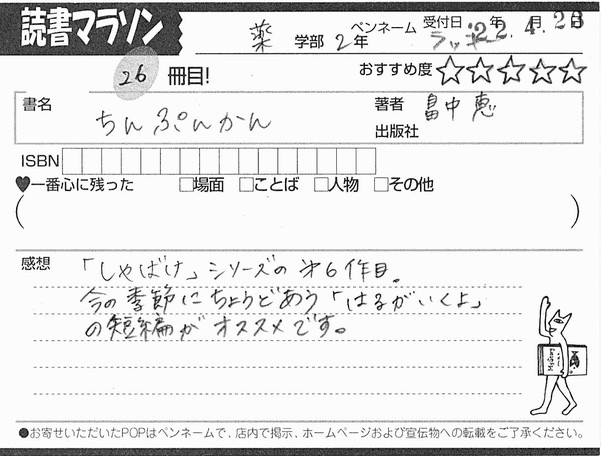 読書マラソン
薬 学部 2年 ペンネーム ラッキー 受付日 '22年 4月 26日
26 冊目! おすすめ度 ☆☆☆☆☆
書名 ちんぷんかん 著者 畠中恵
出版社
ISBN
♥一番心に残った □場面 □ことば □人物 □その他
( )
感想 「しゃばけ」シリーズの第6作目。
今の季節にちょうどあう「はるがいくよ」
の短編がオススメです。
●お寄せいただいたPOPはペンネームで、店内で掲示、ホームページおよび宣伝物への転載をご了承ください。